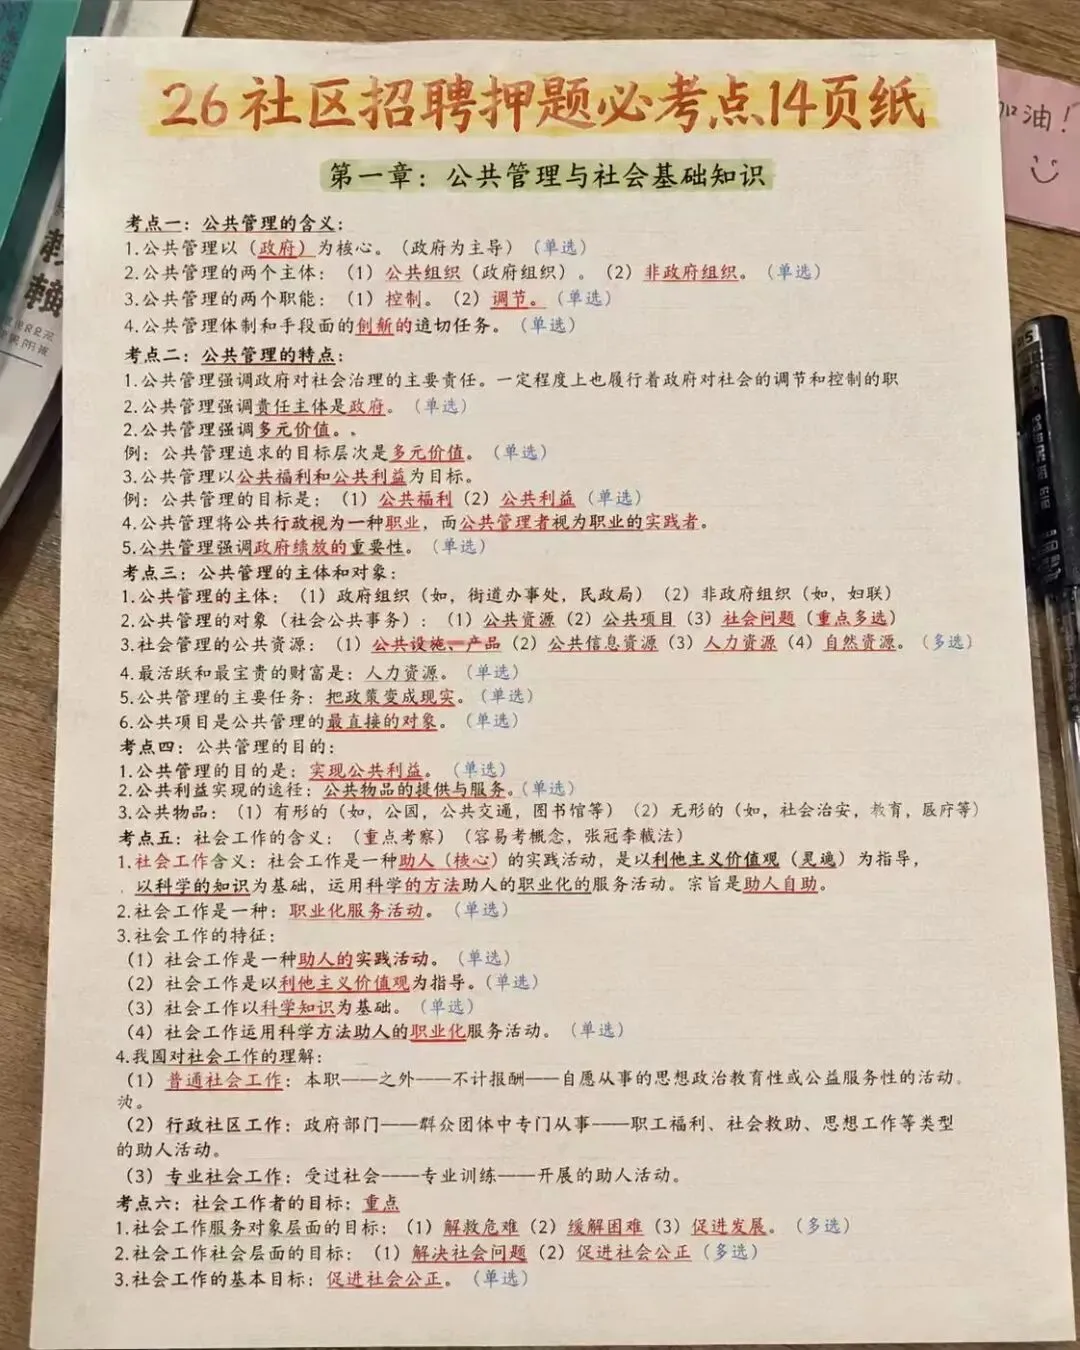 26社区招聘押题必考点14页纸
加油！
第一章：公共管理与社会基础知识
考点一：公共管理的含义：
1.公共管理以（政府）为核心。（政府为主导）（单选）
2.公共管理的两个主体：（1）公共组织（政府组织）。（2）非政府组织。（单选）
3.公共管理的两个职能：（1）控制。（2）调节。（单选）
4.公共管理体制和手段面的创新的迫切任务。（单选）
考点二：公共管理的特点：
1.公共管理强调政府对社会治理的主要责任。一定程度上也履行着政府对社会的调节和控制的职
2.公共管理强调责任主体是政府。（单选）
2.公共管理强调多元价值。.
例：公共管理追求的目标层次是多元价值。（单选）
3.公共管理以公共福利和公共利益为目标。
例：公共管理的目标是：（1）公共福利（2）公共利益（单选）
4.公共管理将公共行政视为一种职业，而公共管理者视为职业的实践者。
5.公共管理强调政府绩放的重要性。（单选）
考点三：公共管理的主体和对象：
1.公共管理的主体：（1）政府组织（如，街道办事处，民政局）（2）非政府组织（如，妇联）
2.公共管理的对象（社会公共事务）：（1）公共资源（2）公共项目（3）社会问题（重点多选）
3.社会管理的公共资源：（1）公共设施、产品（2）公共信息资源（3）人力资源（4）自然资源。（多选）
4.最活跃和最宝贵的财富是：人力资源。（单选）
5.公共管理的主要任务：把政策变成现实。（单选）
6.公共项目是公共管理的最直接的对象。（单选）
考点四：公共管理的目的：
1.公共管理的目的是：实现公共利益。（单选）
2.公共利益实现的途径：公共物品的提供与服务。（单选）
3.公共物品：（1）有形的（如，公园，公共交通，图书馆等）（2）无形的（如，社会治安，教育，医疗等）
考点五：社会工作的含义：（重点考察）（容易考概念，张冠李戴法）
1.社会工作含义：社会工作是一种助人（核心）的实践活动，是以利他主义价值观（灵魂）为指导，
以科学的知识为基础，运用科学的方法助人的职业化的服务活动。宗旨是助人自助。
2.社会工作是一种：职业化服务活动。（单选）
3.社会工作的特征：
（1）社会工作是一种助人的实践活动。（单选）
（2）社会工作是以利他主义价值观为指导。（单选）
（3）社会工作以科学知识为基础。（单选）
（4）社会工作运用科学方法助人的职业化服务活动。（单选）
4.我国对社会工作的理解：
（1）普通社会工作：本职——之外——不计报酬——自愿从事的思想政治教育性或公益服务性的活动。
（2）行政社区工作：政府部门——群众团体中专门从事——职工福利、社会救助、思想工作等类型
的助人活动。
（3）专业社会工作：受过社会——专业训练——开展的助人活动。
考点六：社会工作者的目标：重点
1.社会工作服务对象层面的目标：（1）解救危难（2）缓解困难（3）促进发展。（多选）
2.社会工作社会层面的目标：（1）解决社会问题（2）促进社会公正（多选）
3.社会工作的基本目标：促进社会公正。（单选）